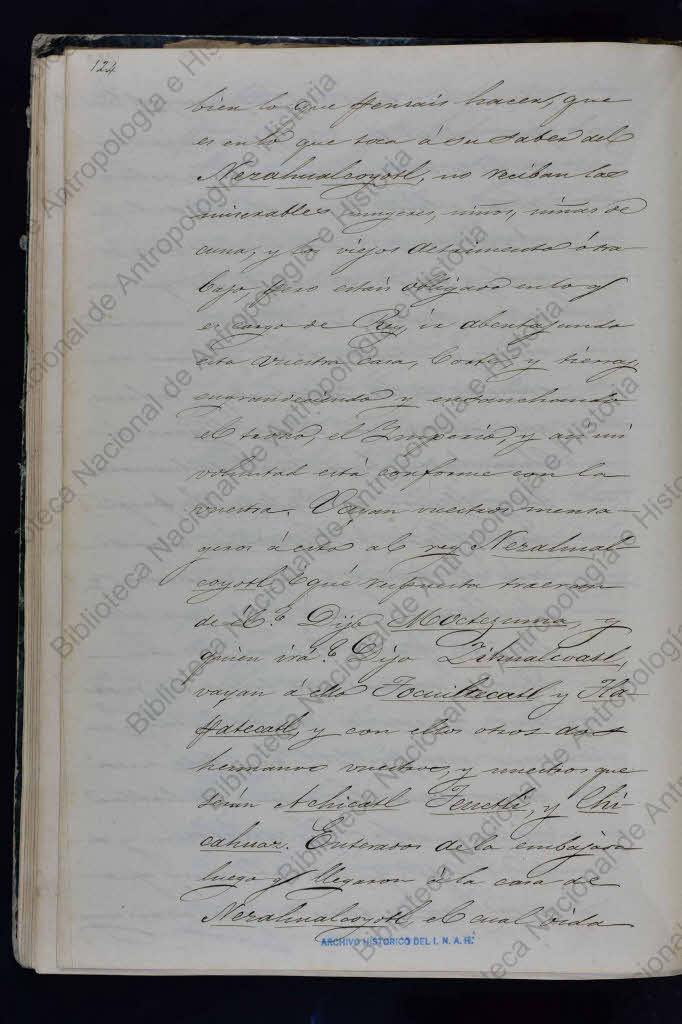 124
bien lo que pensais hacer, que
es en lo que toca á su saber del
Nezahualcoyotl, no reciban las
miserables mugeres, niños, niñas de
cuna, y los viejos detrimento ó tra-
bajo, pero estais obligado en lo q
es cargo de Rey, ir abentajando
esta vuestra casa, Corte, y tierras
engrandeciendo y ensanchando
el trono, el Imperio, y así mi
voluntad está conforme con la
vuestra. Vayan vuestros mensa-
geros á esto al rey Nezahual-
coyotl é qué respuesta traeran
de él? Dijo Moctezuma, y
quien irá? Dijo Zihualcoatl,
vayan á ello Tocuiltecatl y Tla-
patecatl, y con ellos otros dos
hermanos vuestros, y nuestros que
serán Achicatl Teuctli, y Chi-
cahuaz. Enterados de la embajada
luego q llegaron á la casa de
Nezahualcoyotl el cual vida
ARCHIVO HISTORICO DEL I. N. A. H.
Biblioteca Nacional de Antropología e Historia